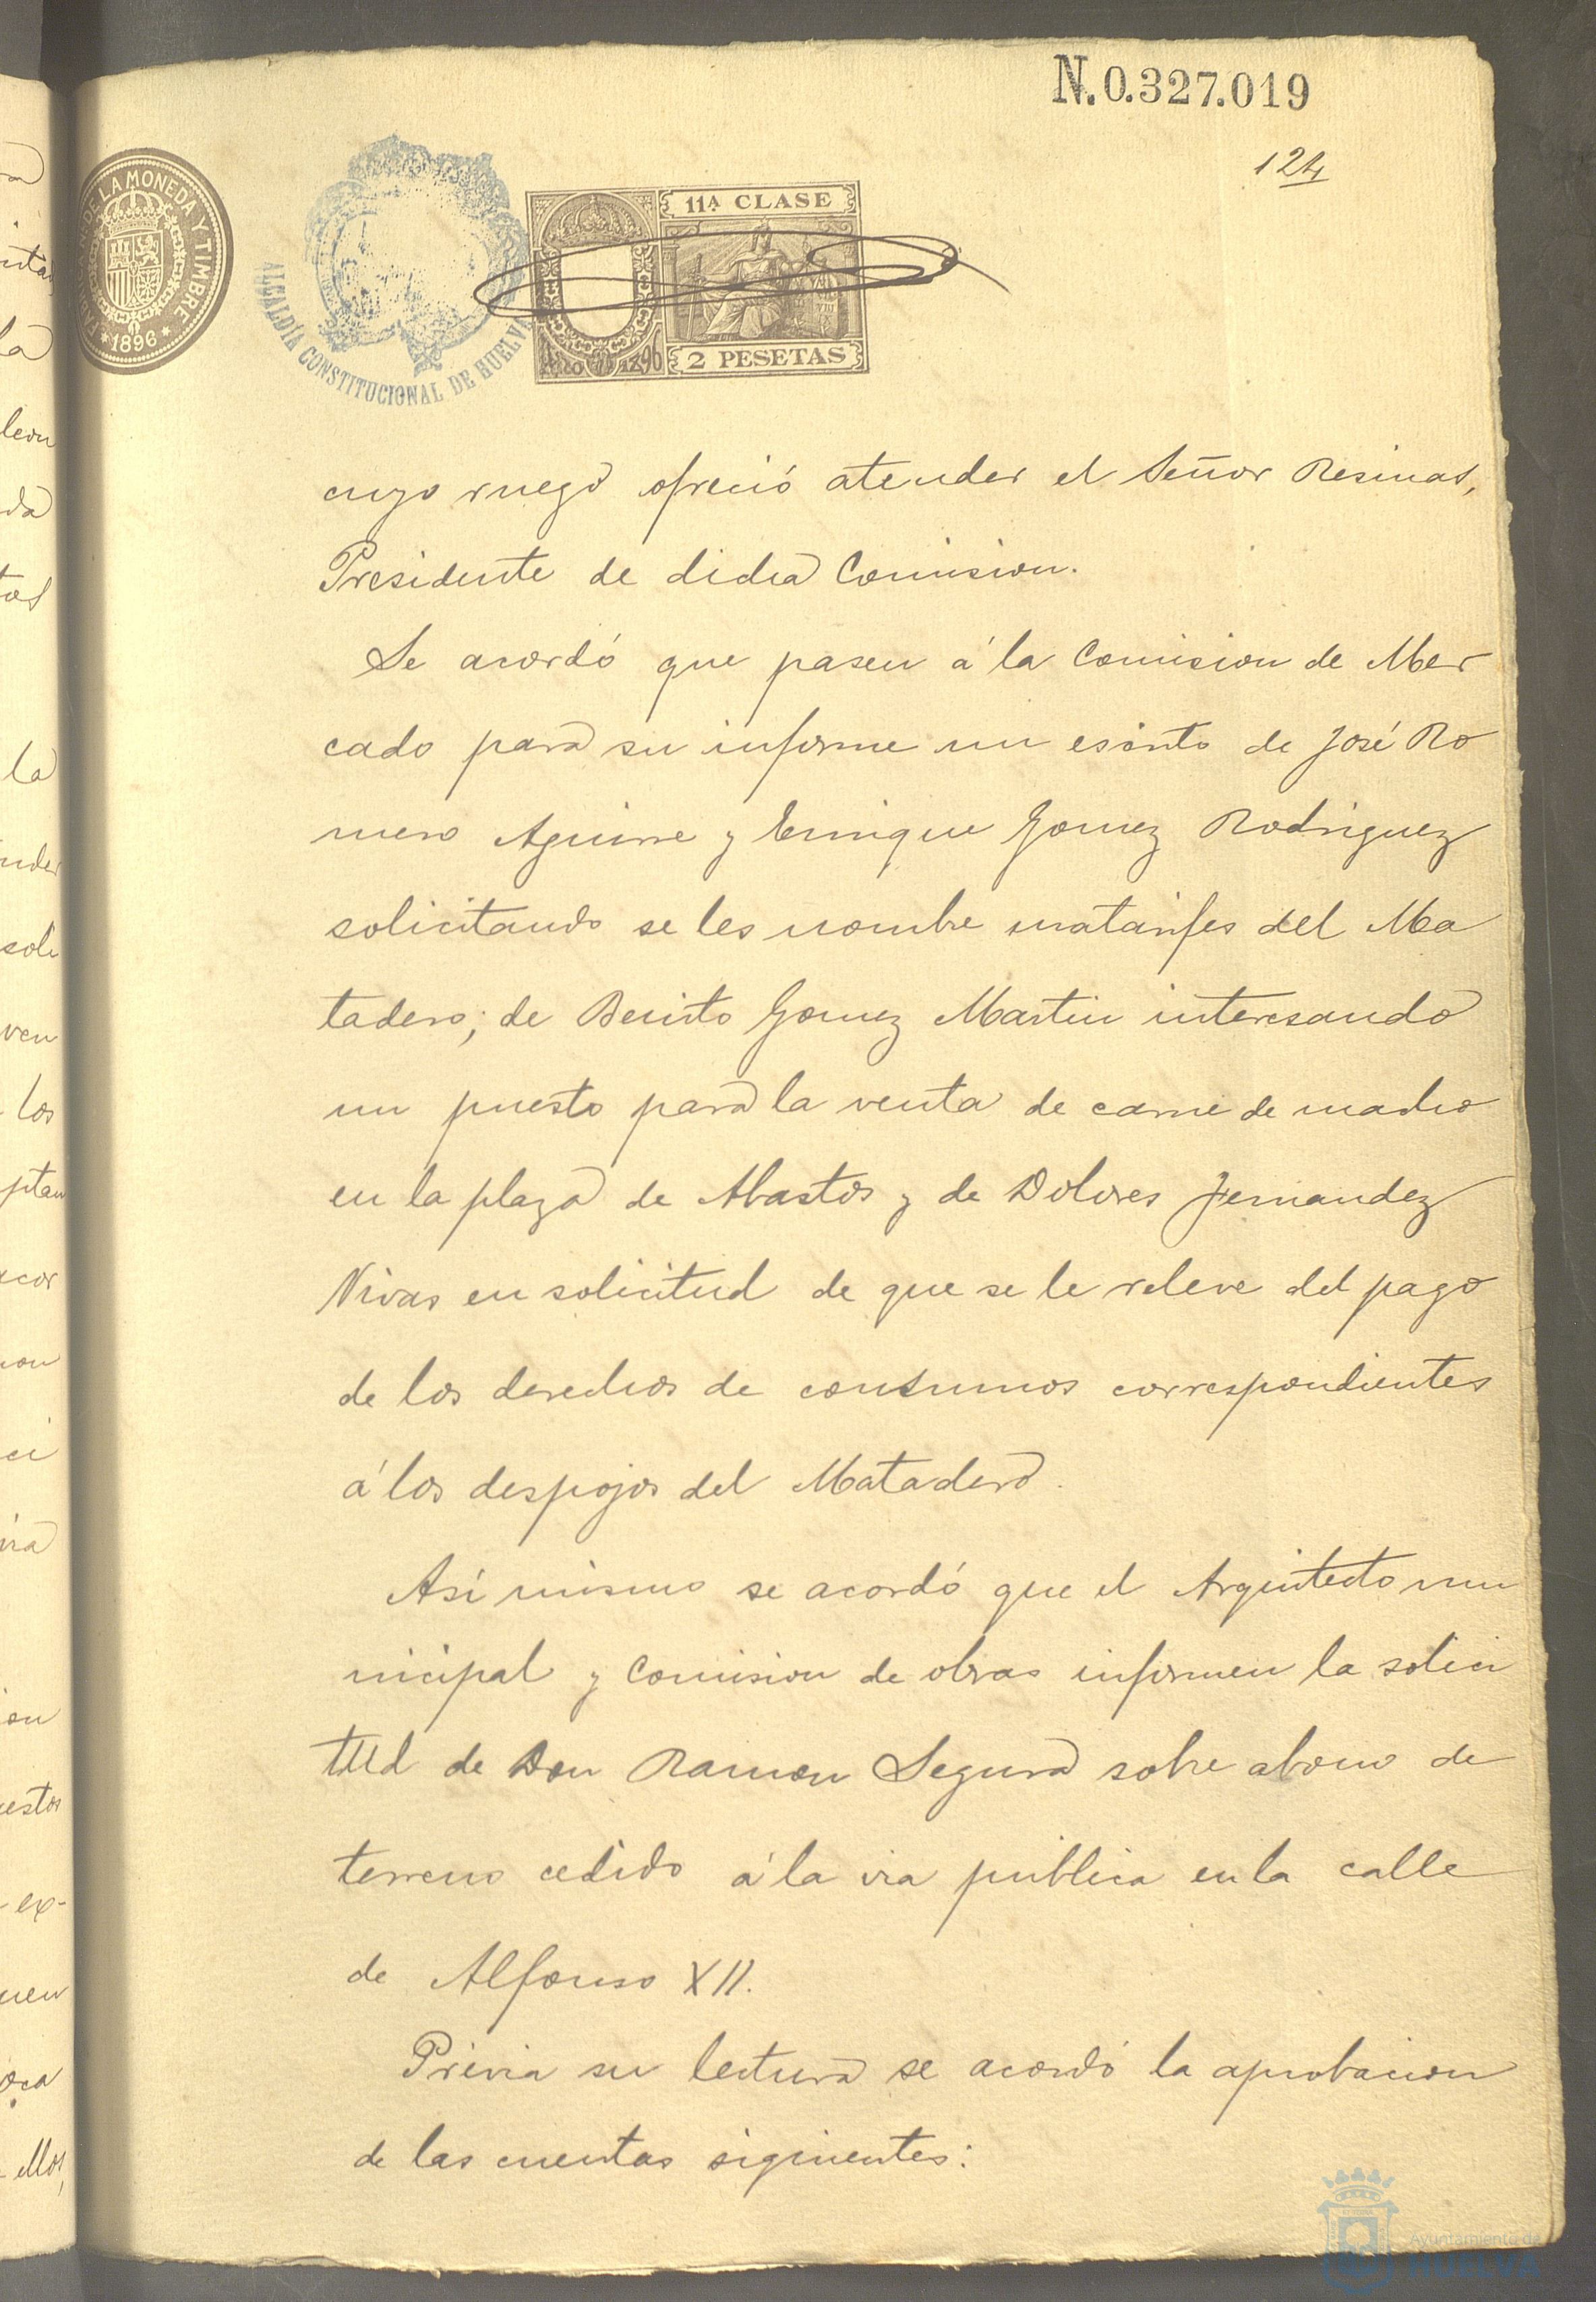 N.0.327.019
124
LA MONEDA Y TIMBRE
*1896*
ALCALDÍA CONSTITUCIONAL DE HUELVA
11ª CLASE
1896
2 PESETAS
cuyo ruego ofreció atender el Señor Resinas,
Presidente de dicha Comision.
Se acordó que pasen á la Comision de Mer
cado para su informe un escrito de José Ro
mero Aguirre y Enrique Gomez Rodriguez
solicitando se les nombre matarifes del Ma
tadero; de Benito Gomez Martin interesando
un puesto para la venta de carne de macho
en la plaza de Abastos y de Dolores Fernandez
Vivas en solicitud de que se le releve del pago
de los derechos de consumos correspondientes
á los despojos del Matadero.
Asi mismo se acordó que el Arquitecto mu
nicipal y Comision de obras informen la solici
tud de Don Ramon Segura sobre abono de
terreno cedido á la via publica en la calle
de Alfonso XII.
Previa su lectura se acordó la aprobacion
de las cuentas siguientes:
leon
la
soli
ven
los
acor
ex-
ellos,
Ayuntamiento de
HUELVA